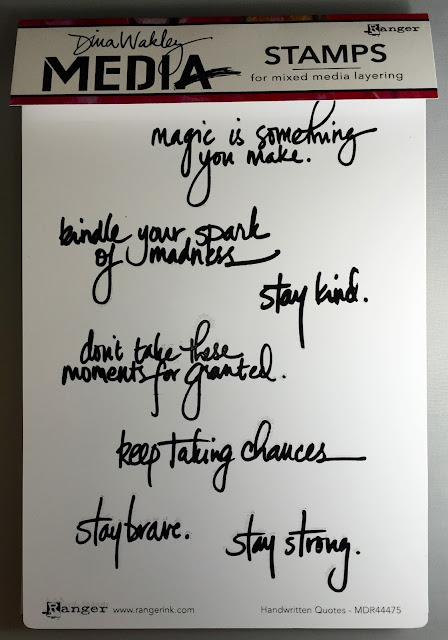 Dina Wakley
MEDIA
Ranger
STAMPS
for mixed media layering
magic is something
you make.
kindle your spark
of madness
stay kind.
don't take these
moments for granted.
keep taking chances
stay brave.
stay strong.
Ranger www.rangerink.com Handwritten Quotes - MDR44475